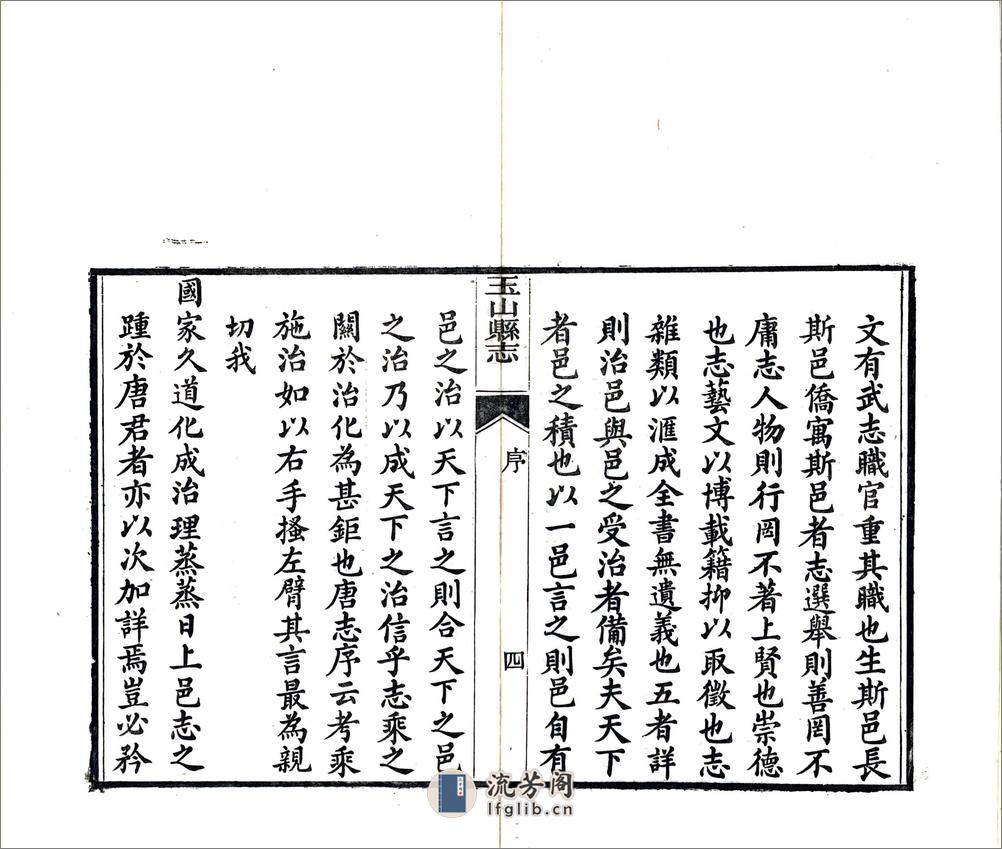 文有武志職官重其職也生斯邑長
斯邑僑寓斯邑者志選舉則善罔不
庸志人物則行罔不著上賢也崇德
也志藝文以博載籍抑以取徵也志
雜類以滙成全書無遺義也五者詳
則治邑與邑之受治者備矣夫天下
者邑之積也以一邑言之則邑自有
玉山縣志
序
四
邑之治以天下言之則合天下之邑
之治乃以成天下之治信乎志乘之
關於治化為甚鉅也唐志序云考乘
施治如以右手搔左臂其言最為親
切我
國家久道化成治理蒸蒸日上邑志之
踵於唐君者亦以次加詳焉豈必矜
流芳阁
lfglib.cn